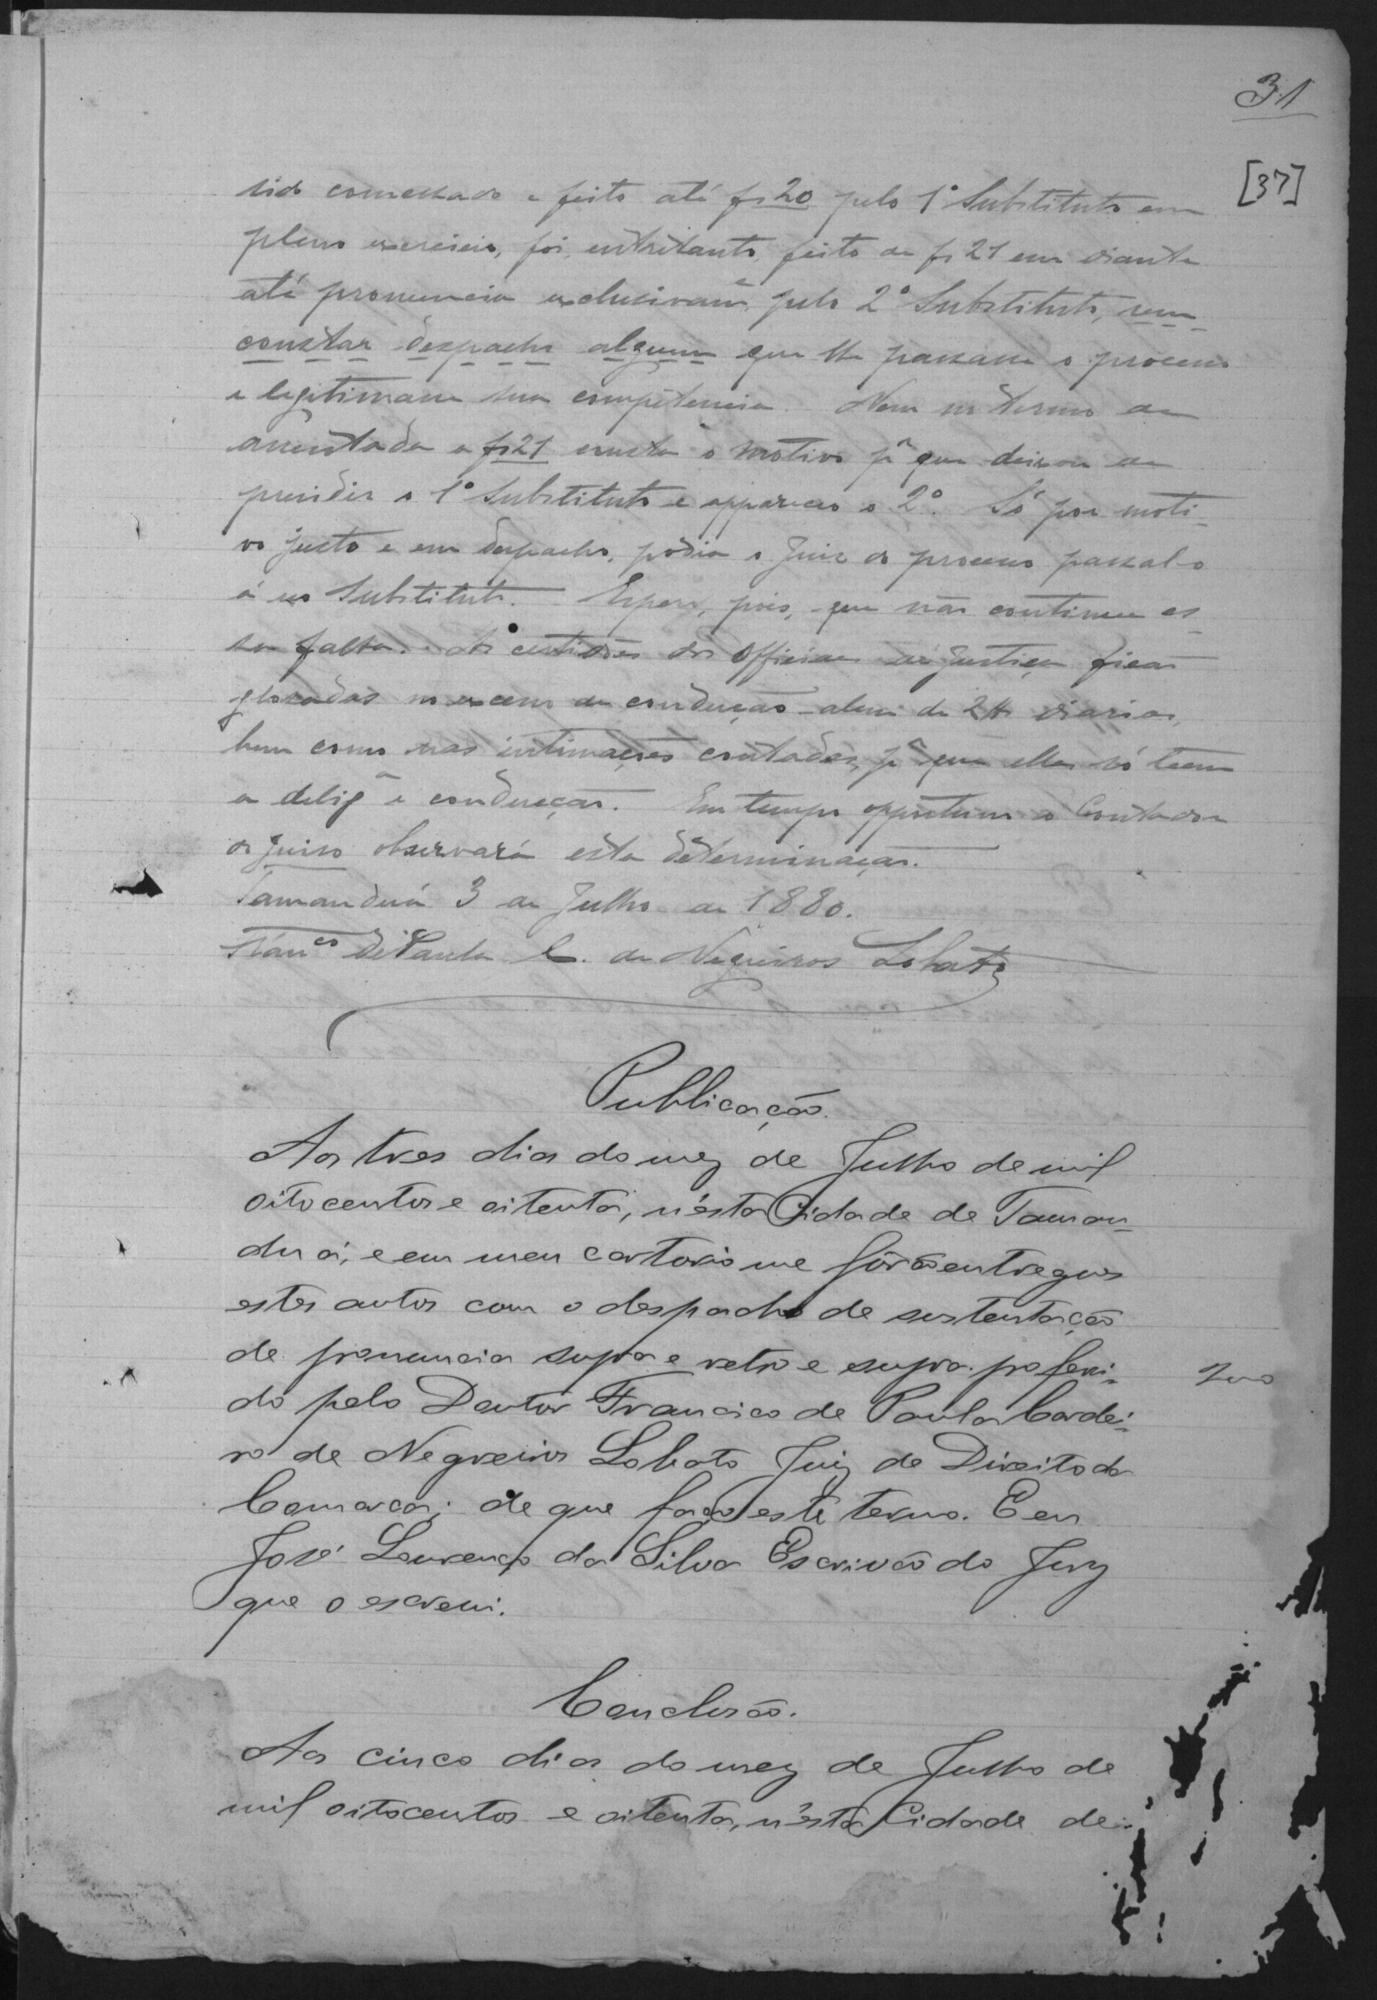 31
[37]
sido comessado e feito até fs 20 pelo 1º Substituto em
pleno exercicio, foi, entretanto, feito de fs 21 em diante
até pronuncia exclusivamᵉ pelo 2º Substituto, sem
constar despacho algum que lhe passasse o processo
e legitimasse sua competencia. Nem no termo de
assentada a fs 21 consta o motivo pʳ que deixou de
presidir o 1º Substituto e appareceo o 2º. Só por moti-
vo justo e em despacho, podia o Juiz do processo passal-o
á seo Substituto. Espero, pois, que não continue es-
sa falta. As certidões dos Officiaes de justiça ficão
glozadas no excesso de conducção alem de 2$ diarios,
bem como nas intimações contadas, pʳ que elles só teem
a deligᵃ e conducção. Em tempo opportuno o Contador
do juiso observará esta determinação.
Tamanduá 3 de Julho de 1880.
Francᶜᵒ de Paula C. de Negreiros Lobato
Publicação.
Aos tres dias do mez de Julho de mil
oitocentos e oitenta, n'ésta Cidade de Taman-
duá, e em meu cartorio me fôrão entregues
estes autos com o despacho de sustentação
de pronuncia supra e retro e supra proferi-
do pelo Doutor Francisco de Paula Cordei-
ro de Negreiros Lobato Juiz de Direito da
Comarca; de que faço este termo. E eu
José Lourenço da Silva Escrivão do Jury
que o escrevi.
Conclusão.
Aos cinco dias do mez de Julho de
mil oitocentos e oitenta, n'ésta Cidade de